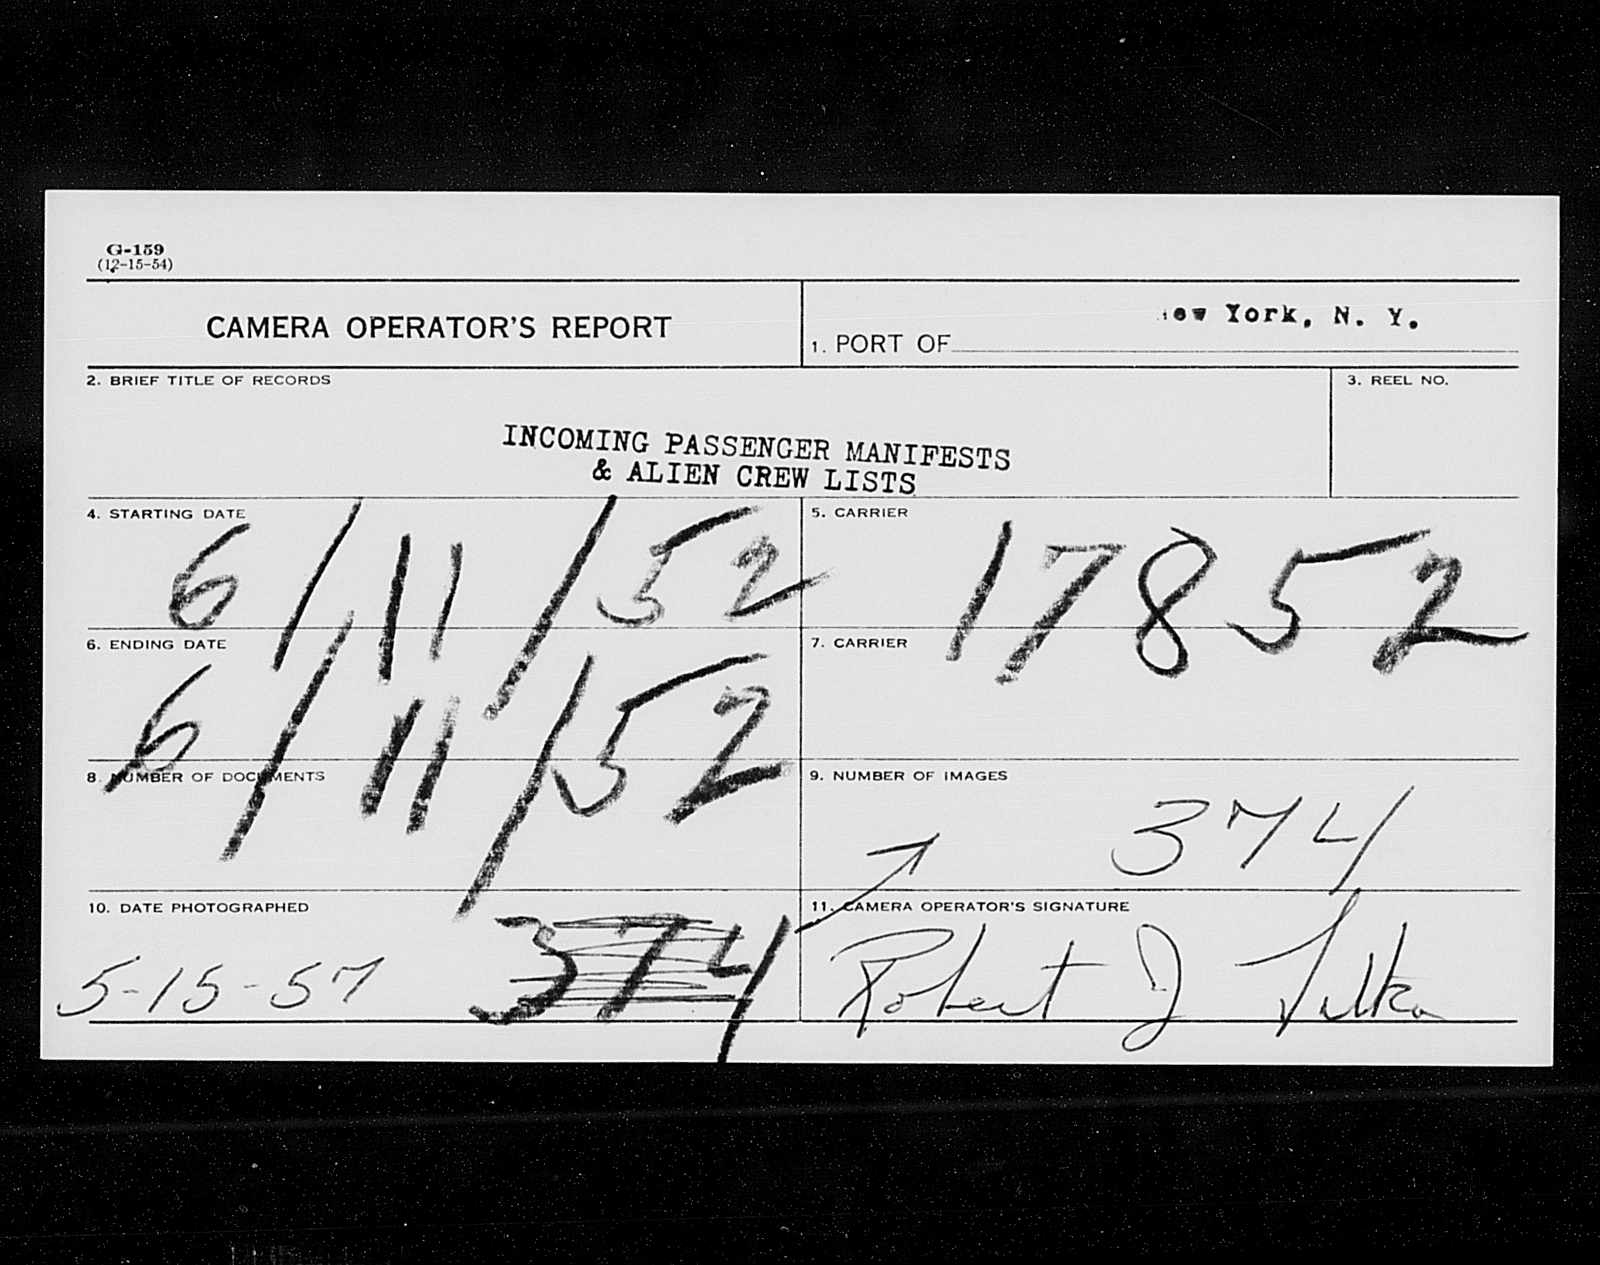 G-159
(12-15-54)
CAMERA OPERATOR'S REPORT
1. PORT OF
ew York, N. Y.
2. BRIEF TITLE OF RECORDS
3. REEL NO.
INCOMING PASSENGER MANIFESTS
& ALIEN CREW LISTS
4. STARTING DATE
6/11/52
5. CARRIER
17852
6. ENDING DATE
6/11/52
7. CARRIER
8. NUMBER OF DOCUMENTS
9. NUMBER OF IMAGES
374
10. DATE PHOTOGRAPHED
5-15-57
374
11. CAMERA OPERATOR'S SIGNATURE
Robert J